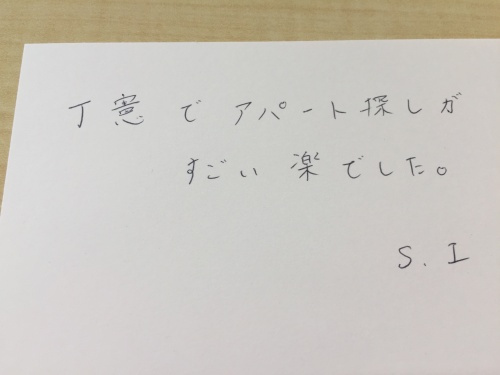 丁憲で アパート探しが
すごい 楽でした。
S. I